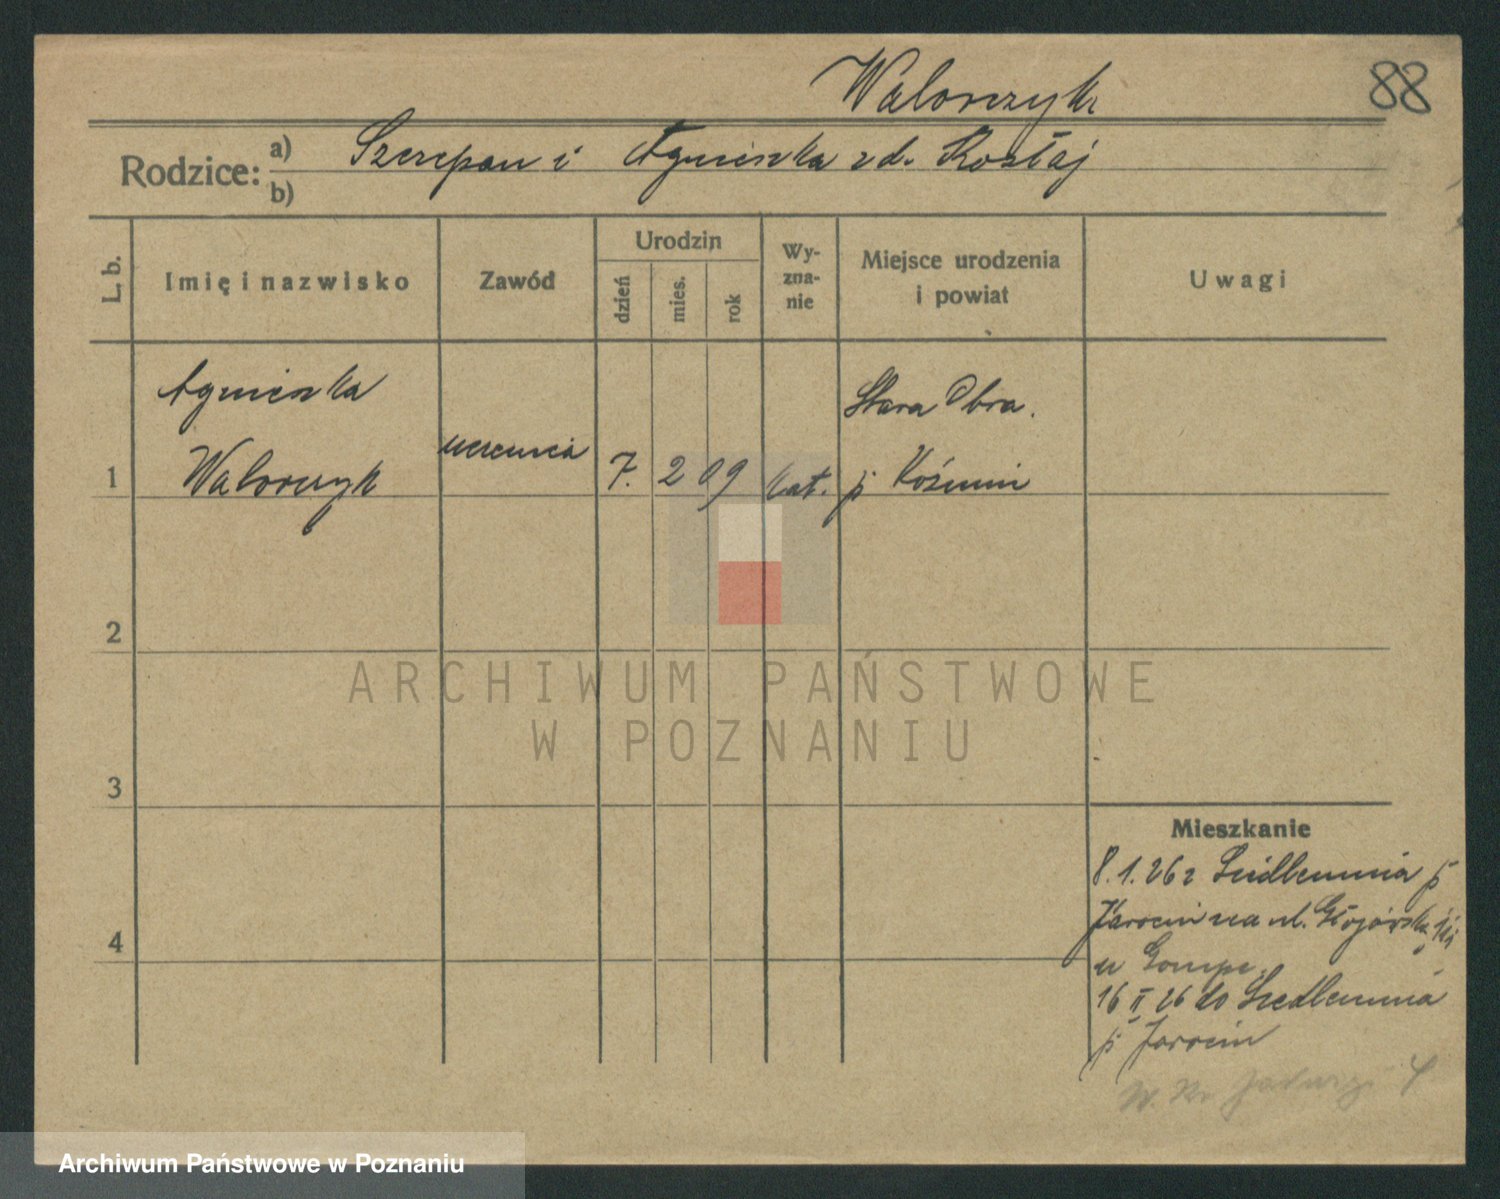 Walorczyk
88
Rodzice: a) Szczepan i Agnieszka zd. Kostaj
b)
L. b.
Imię i nazwisko
Zawód
Urodzin
dzień
mies.
rok
Wy-
zna-
nie
Miejsce urodzenia
i powiat
Uwagi
Agnieszka
Stara Obra.
1 Walorczyk uczennica 7. 2 09 kat. p Koźmin
2
3
4
ARCHIWUM PAŃSTWOWE
W POZNANIU
Mieszkanie
8.1.26 z Siedlemina p
Jarocin na ul.
u
16 II 26 do Siedlemina
p Jarocin
Archiwum Państwowe w Poznaniu